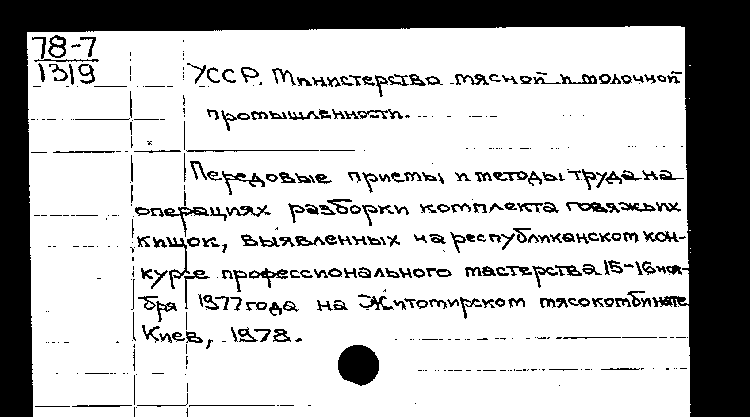 78-7
1319
УССР. Министерство мясной и молочной
промышленности.
Передовые приемы и методы труда на
операциях разборки комплекта говяжьих
кишок, выявленных на республиканском кон-
курсе профессионального мастерства 15-16 ноя-
бря 1977 года на Житомирском мясокомбинате
Киев, 1978.